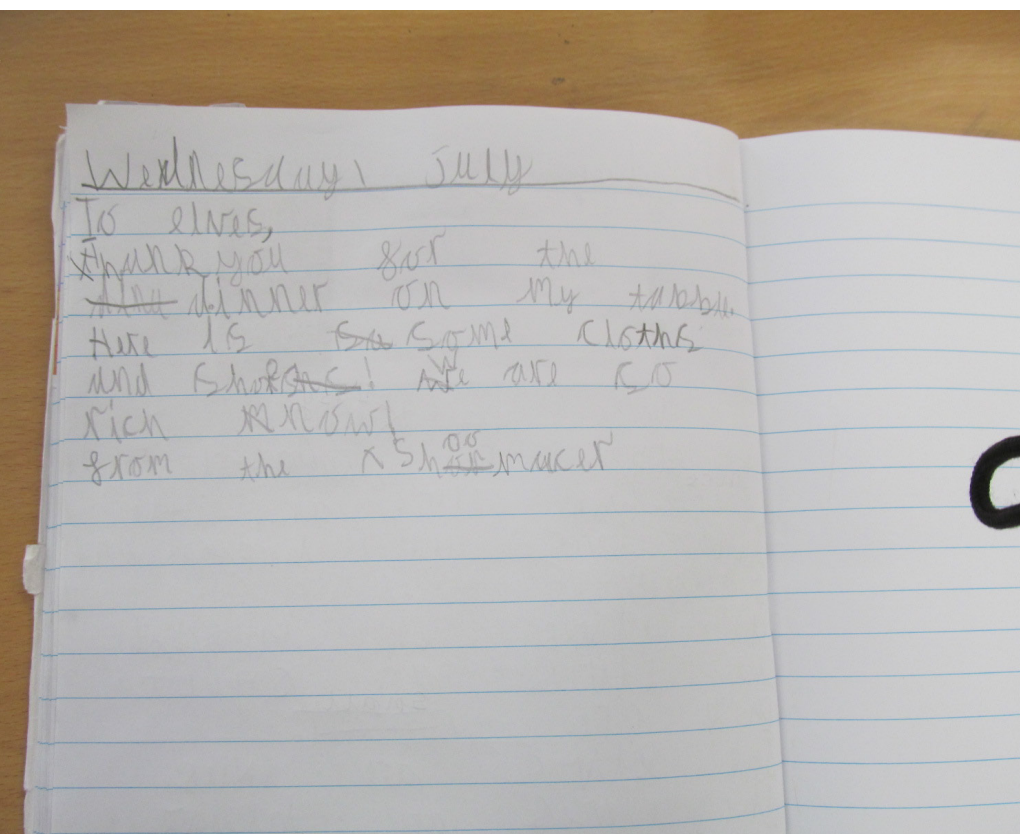 Wednesday 1 July
To elves,
thank you for the
dinner on my tabble.
Here is some cloths
and shoes! We are so
rich now!
from the Shoomacer